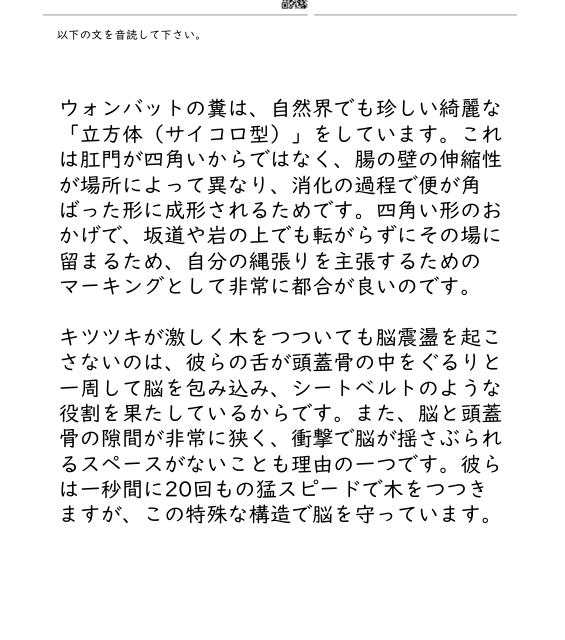 以下の文を音読して下さい。
ウォンバットの糞は、自然界でも珍しい綺麗な
「立方体（サイコロ型）」をしています。これ
は肛門が四角いからではなく、腸の壁の伸縮性
が場所によって異なり、消化の過程で便が角
ばった形に成形されるためです。四角い形のお
かげで、坂道や岩の上でも転がらずにその場に
留まるため、自分の縄張りを主張するための
マーキングとして非常に都合が良いのです。
キツツキが激しく木をつついても脳震盪を起こ
さないのは、彼らの舌が頭蓋骨の中をぐるりと
一周して脳を包み込み、シートベルトのような
役割を果たしているからです。また、脳と頭蓋
骨の隙間が非常に狭く、衝撃で脳が揺さぶられ
るスペースがないことも理由の一つです。彼ら
は一秒間に20回もの猛スピードで木をつつき
ますが、この特殊な構造で脳を守っています。